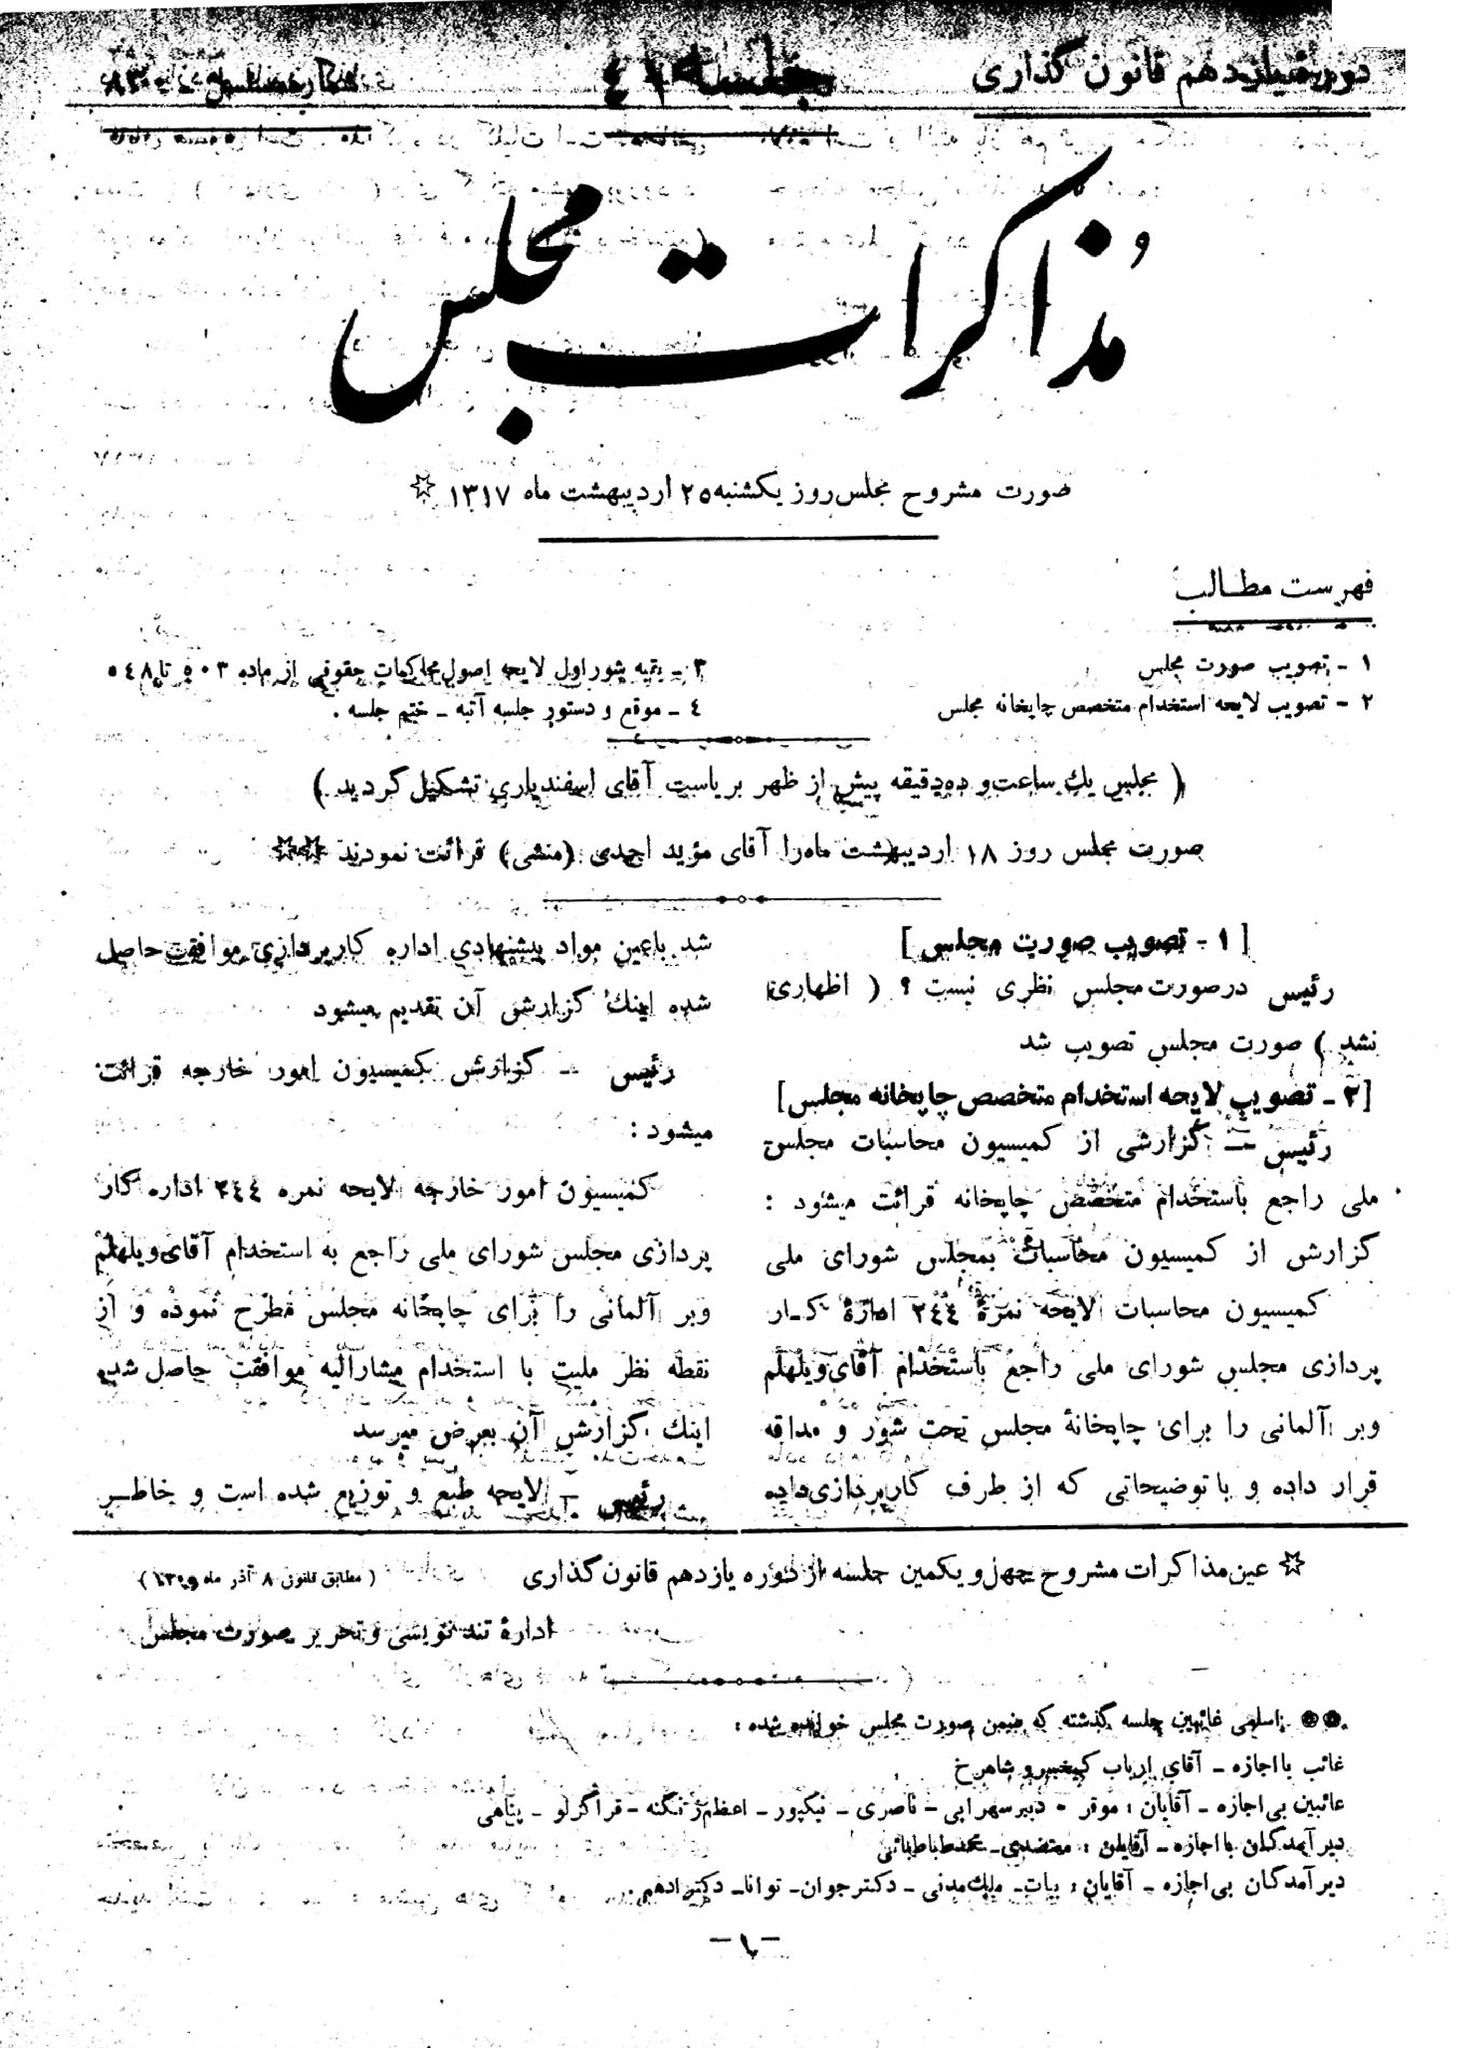 دوره یازدهم قانون گذاری
جلسه ٤١
مذاکرات مجلس
صورت مشروح مجلس روز یکشنبه ٢٥ اردیبهشت ماه ١٣١٧ ☆
فهرست مطالب
١ - تصویب صورت مجلس
٢ - تصویب لایحه استخدام متخصص چاپخانه مجلس
٣ - بقیه شور اول لایحه اصول محاکمات حقوقی از ماده ٥٠٣ تا ٥٤٨
٤ - موقع و دستور جلسه آتیه - ختم جلسه .
( مجلس یك ساعت و ده دقیقه پیش از ظهر بریاست آقای اسفندیاری تشکیل گردید )
صورت مجلس روز ١٨ اردیبهشت ماه را آقای مؤید احمدی (منشی) قرائت نمودند ☆☆
[ ١ - تصویب صورت مجلس ]
رئیس در صورت مجلس نظری نیست ؟ ( اظهاری
نشد ) صورت مجلس تصویب شد
[ ٢ - تصویب لایحه استخدام متخصص چاپخانه مجلس ]
رئیس - گزارشی از کمیسیون محاسبات مجلس
ملی راجع باستخدام متخصص چاپخانه قرائت میشود :
گزارش از کمیسیون محاسبات بمجلس شورای ملی
کمیسیون محاسبات لایحه نمرهٔ ٢٤٤ ادارهٔ کار
پردازی مجلس شورای ملی راجع باستخدام آقای ویلهلم
وبر آلمانی را برای چاپخانهٔ مجلس تحت شور و مداقه
قرار داده و با توضیحاتی که از طرف کارپردازی داده
شد باعین مواد پیشنهادی اداره کارپردازی موافقت حاصل
شده اینك گزارش آن تقدیم میشود
رئیس - گزارش کمیسیون امور خارجه قرائت
میشود :
کمیسیون امور خارجه لایحه نمره ٢٤٤ اداره کار
پردازی مجلس شورای ملی راجع به استخدام آقای ویلهلم
وبر آلمانی را برای چاپخانه مجلس مطرح نموده و از
نقطه نظر ملیت با استخدام مشارالیه موافقت حاصل شد
اینك گزارش آن بعرض میرسد
رئیس - لایحه طبع و توزیع شده است و خاطر
☆ عین مذاکرات مشروح چهل و یکمین جلسه از دوره یازدهم قانون گذاری
( مطابق قانون ٨ آذر ماه
ادارهٔ تند نویسی و تحریر صورت مجلس
●● اسامی غائبین جلسه گذشته که ضمن صورت مجلس خوانده شده :
غائب با اجازه - آقای ارباب کیخسرو شاهرخ
غائبین بی اجازه - آقایان : موقر - دبیر سهرابی - ناصری - نیکپور - اعظم زنگنه - قراگزلو - پناهی
دیر آمدگان با اجازه - آقایان : معتضدی - محمد طباطبائی
دیر آمدگان بی اجازه - آقایان : بیات - ملك مدنی - دکتر جوان - توانا - دکتر ادهم .
- ١ -